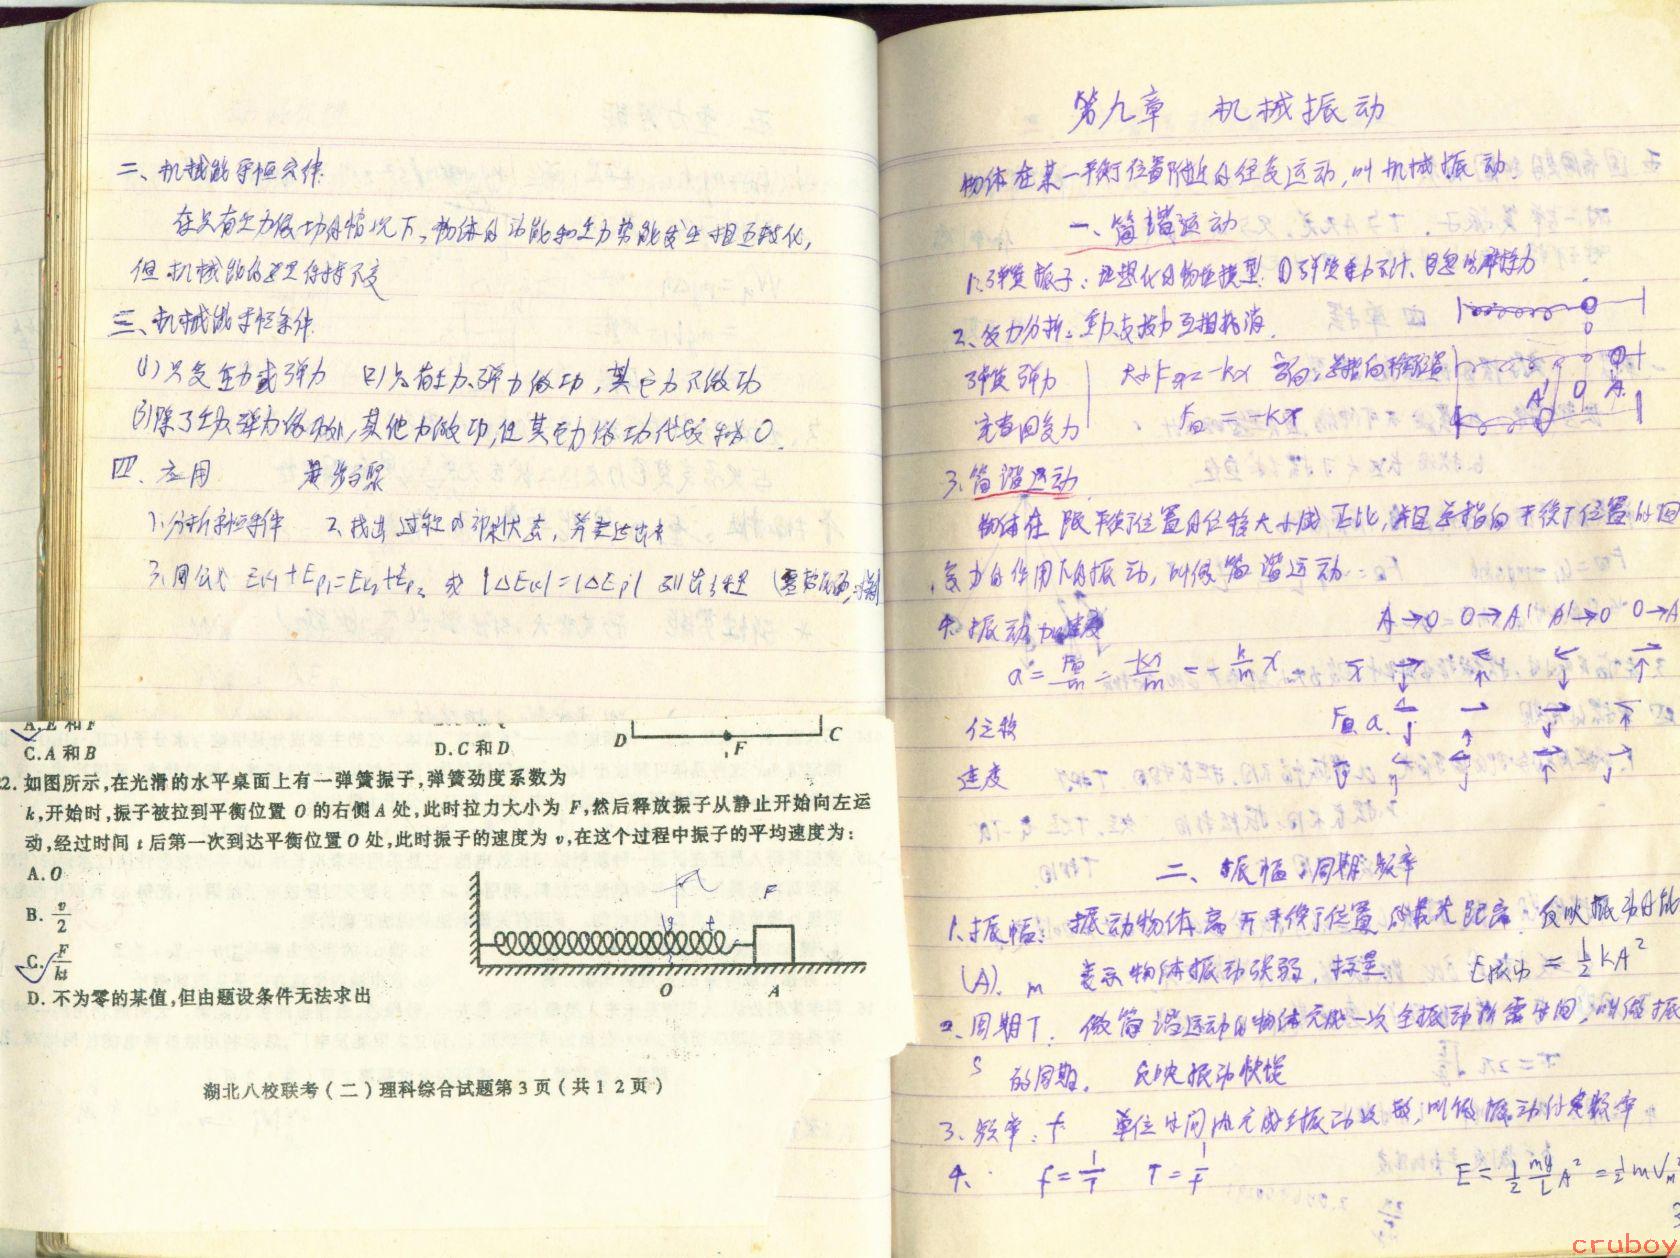 二、机械能守恒定律
在只有重力做功的情况下,物体的动能和重力势能发生相互转化,
但机械能的总量保持不变
三、机械能守恒条件
(1)只受重力或弹力 (2)只有重力、弹力做功,其它力不做功
(3)除了重力、弹力做功外,其他力做功,但其它力做功代数和为0.
四、应用 步骤
1.分析守恒条件 2.找出过程的初末状态,并表达出来
3.用公式 Ek₁+Ep₁=Ek₂+Ep₂ 或 |ΔEk|=|ΔEp| 列出方程
A.E 和 F
C.A 和 B
D.C 和 D
D F C
2. 如图所示,在光滑的水平桌面上有一弹簧振子,弹簧劲度系数为
k,开始时,振子被拉到平衡位置 O 的右侧 A 处,此时拉力大小为 F,然后释放振子从静止开始向左运
动,经过时间 t 后第一次到达平衡位置 O 处,此时振子的速度为 v,在这个过程中振子的平均速度为:
A. O
B. v/2
C. F/kt
D. 不为零的某值,但由题设条件无法求出
F
t
O A
湖北八校联考(二)理科综合试题第3页(共12页)
第九章 机械振动
物体在某一平衡位置附近的往复运动,叫机械振动.
一、简谐运动
1.弹簧振子:理想化的物理模型. ①弹簧重力不计、
2.受力分析:重力支持力互相抵消.
弹簧弹力 大小F=-kx 方向:总指向平衡位置
充当回复力 F回=-kx
A' O A
3.简谐运动
物体在跟平衡位置的位移大小成正比,并且总指向平衡位置的回
复力的作用下的振动,叫做简谐运动
4.振动加速度
A→O O→A' A'→O O→A
a=F回/m=-kx/m=-k/m x
位移 x → ← ← →
F回 a. ← → → ←
速度 v ← ← → →
二、振幅、周期、频率
1.振幅: 振动物体离开平衡位置的最大距离. 反映振动的能
(A). m 表示物体振动强弱,标量 E振动=½kA²
2.周期T. 做简谐运动的物体完成一次全振动所需时间,叫做振
s 的周期. 反映振动快慢
3.频率:f 单位时间内完成全振动次数,叫做振动的频率
4. f=1/T T=1/f
E=½ mg/L A²=½mVm²
cruboy